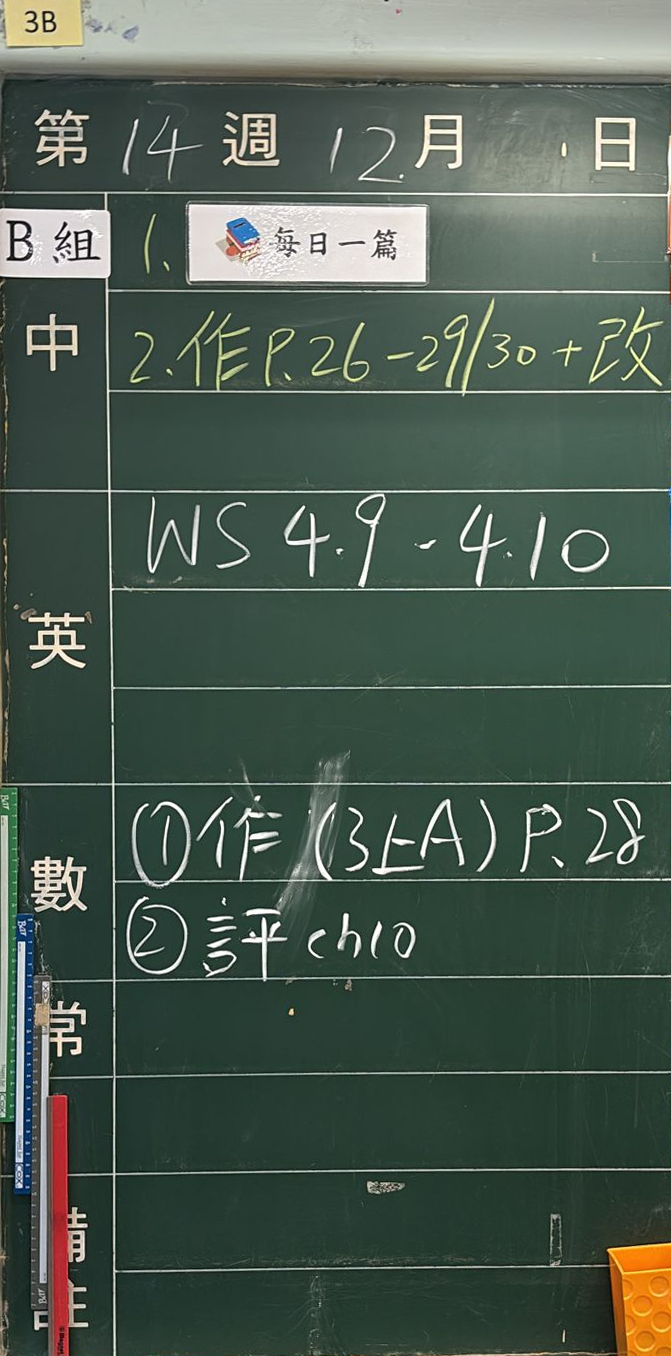 3B
第 14 週 12 月 日
B 組 1. 每日一篇
中 2. 作 P. 26 - 29/30 + 改
英 WS 4.9 - 4.10
數 ① 作 (3上A) P. 28
② 評 ch10
常
備註